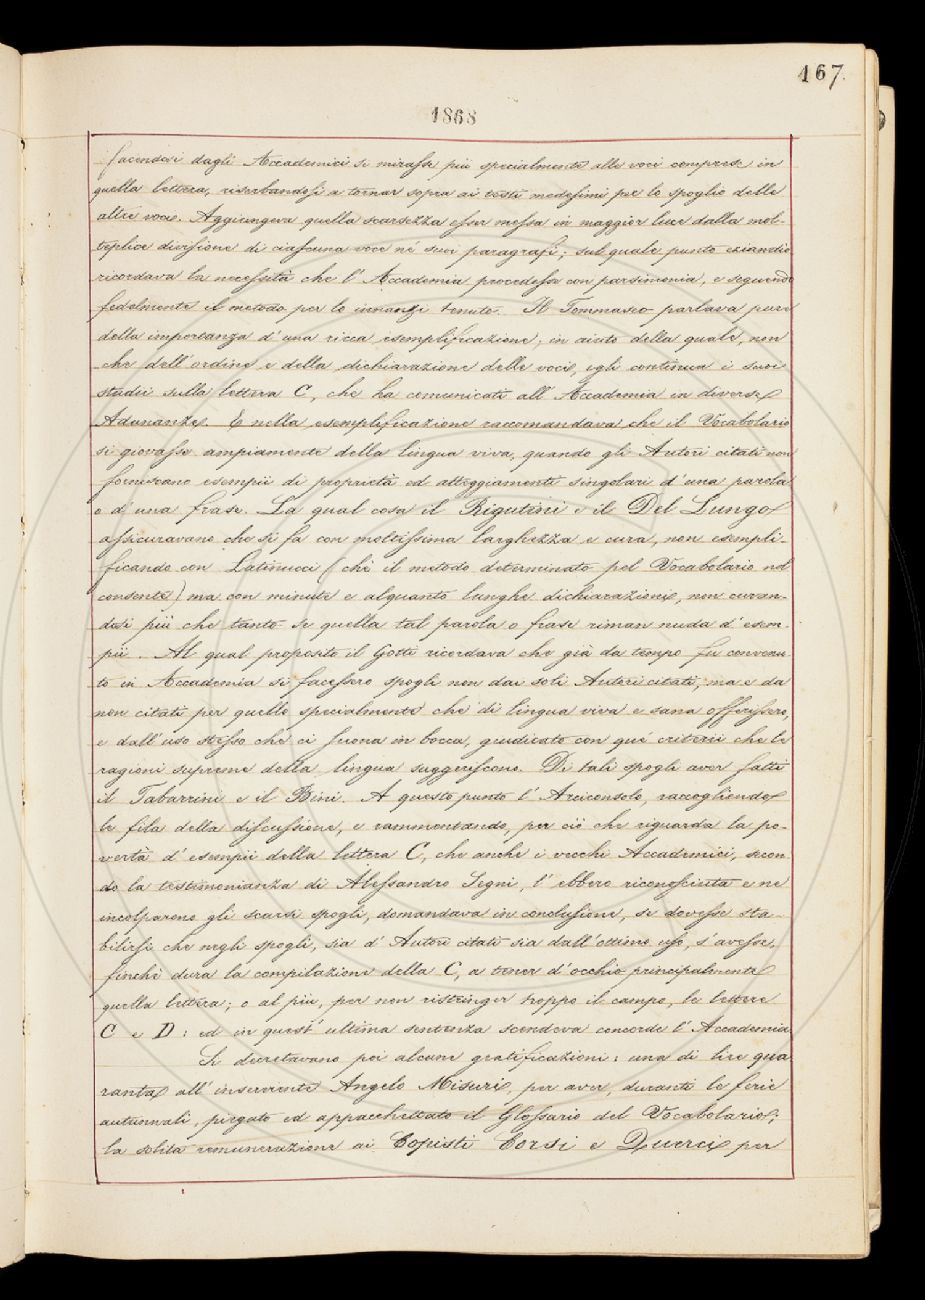 167.
1868
facendosi dagli Accademici si mirasse più specialmente alle voci comprese in
quella lettera, riserbandosi a tornar sopra ai testi medesimi per lo spoglio delle
altre voci. Aggiungeva quella scarsezza esser messa in maggior luce dalla mol-
teplice divisione di ciascuna voce ne' suoi paragrafi; sul quale punto eziandio
ricordava la necessità che l'Accademia procedesse con parsimonia, e seguendo
fedelmente il metodo per lo innanzi tenuto. Il Tommaseo parlava pure
della importanza d'una ricca esemplificazione; in aiuto della quale, non
che dell'ordine e della dichiarazione delle voci, egli continua i suoi
studii sulla lettera C, che ha comunicati all'Accademia in diverse
Adunanze. E nella esemplificazione raccomandava che il Vocabolario
si giovasse ampiamente della lingua viva, quando gli Autori citati non
forniscano esempii di proprietà ed atteggiamenti singolari d'una parola
o d'una frase. La qual cosa il Rigutini e il Del Lungo
assicuravano che si fa con moltissima larghezza e cura, non esempli-
ficando con Latinucci (chè il metodo determinato pel Vocabolario nol
consente) ma con minute e alquanto lunghe dichiarazioni, non curan-
dosi più che tanto se quella tal parola o frase riman nuda d'esem-
pii. Al qual proposito il Gotti ricordava che già da tempo fu convenu
to in Accademia si facessero spogli non dai soli Autori citati, ma e da
non citati per quello specialmente che di lingua viva e sana offerissero,
e dall'uso stesso che ci suona in bocca, giudicato con que' criterii che le
ragioni supreme della lingua suggeriscono. Di tali spogli aver fatti
il Tabarrini e il Bini. A questo punto l'Arciconsolo, raccogliendo
le fila della discussione, e rammentando, per ciò che riguarda la po-
vertà d'esempii della lettera C, che anche i vecchi Accademici, secon
do la testimonianza di Alessandro Segni, l'ebbero riconosciuta e ne
incolparono gli scarsi spogli, domandava in conclusione, se dovesse sta-
bilirsi che negli spogli, sia d'Autori citati sia dall'ottimo uso, s'avesse,
finchè dura la compilazione della C, a tener d'occhio principalmente
quella lettera; o al più, per non ristringer troppo il campo, le lettere
C e D: ed in quest'ultima sentenza scendeva concorde l'Accademia
Si decretavano poi alcune gratificazioni: una di lire qua
ranta all'inserviente Angelo Misuri, per aver, durante le ferie
autunnali, piegato ed appacchettato il Glossario del Vocabolario;
la solita remunerazione ai Copisti Corsi e Querci per